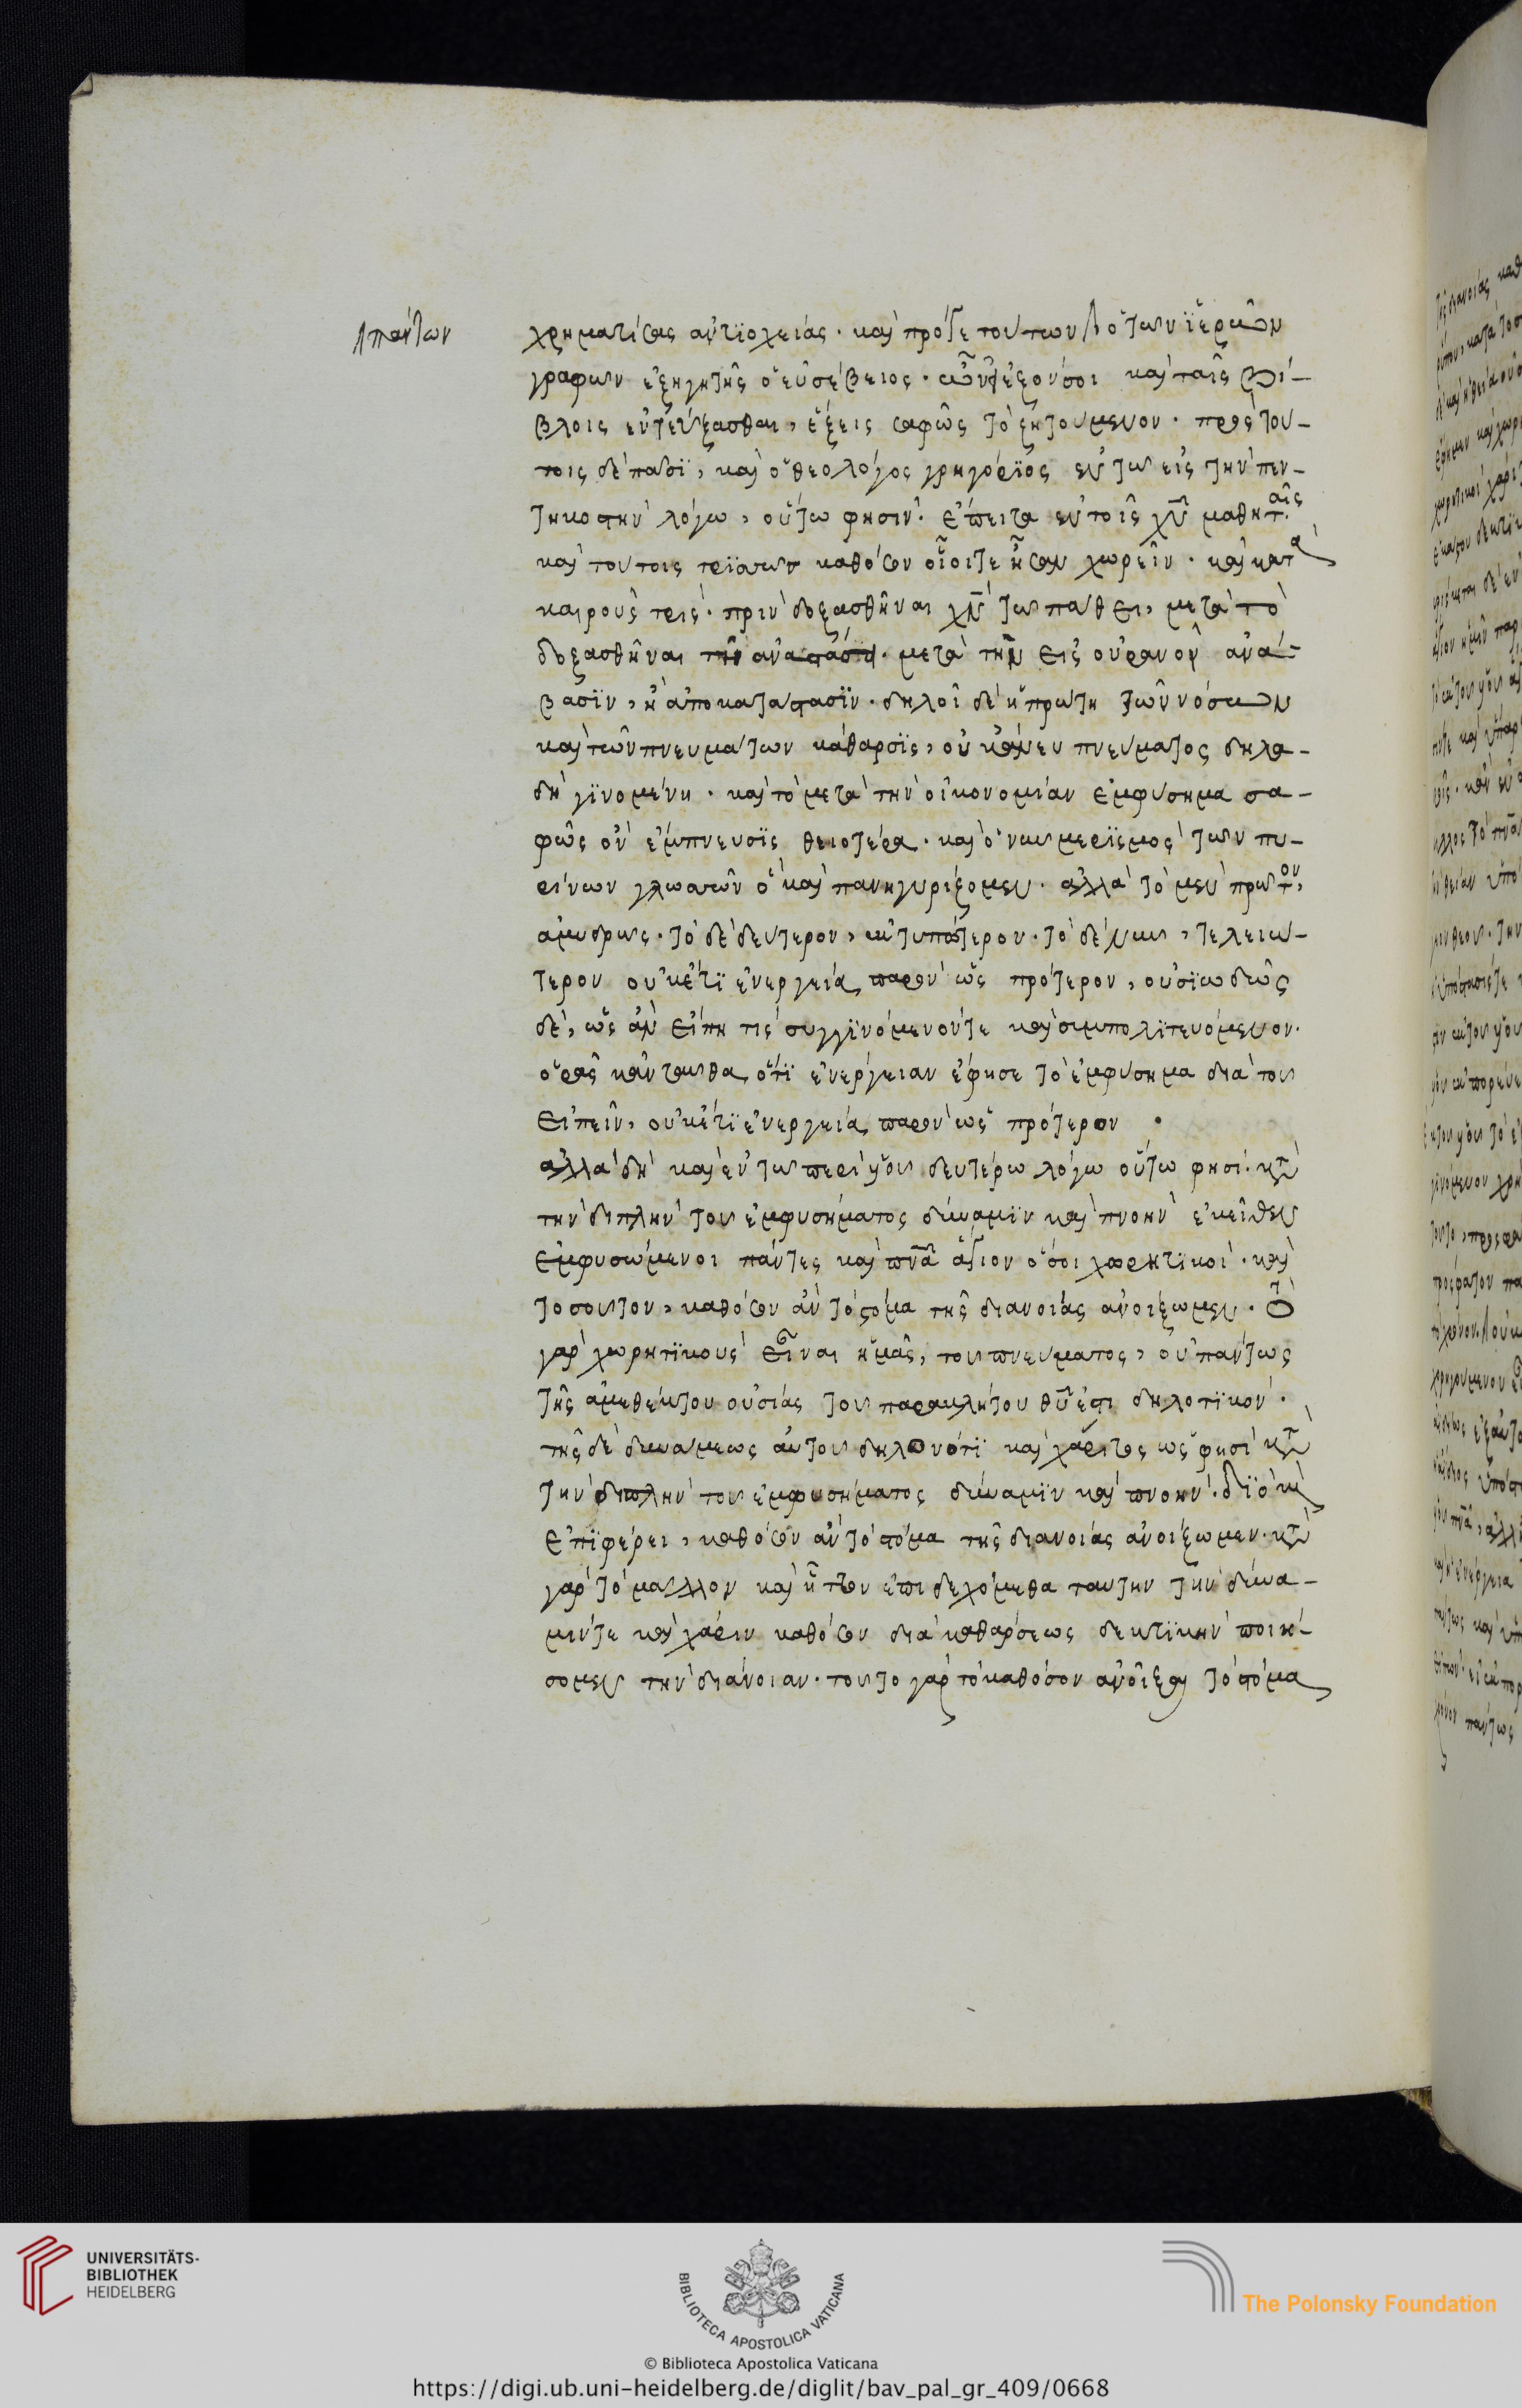 ἁπάντων
χρηματίσας ἀντϊοχείας. καὶ πρό γε τούτων ὁ τῶν ϊερῶν
γραφῶν ἐξηγητὴς ὁ εὐσέβειος. ὧν ἐξόν σοι καὶ ταῖς βί-
βλοις ἐντεύξασθαι, ἕξεις σαφῶς τὸ ζητούμενον. πρὸς τού-
τοις δὲ πᾶσϊ, καὶ ὁ θεολόγος γρηγόρϊος ἐν τῶ εἰς τὴν πεν-
τηκοστὴν λόγω, οὕτω φησίν. ἔπειτα ἐν τοῖς χῦ μαθηταῖς
καὶ τούτοις τρϊσσῶς καθόσον οἷοί τε ἦσαν χωρεῖν. καὶ κατὰ
καιροὺς τρεῖς. πρὶν δοξασθῆναι χν τῶ πάθει, μετὰ τὸ
δοξασθῆναι τὴν ἀνάστασϊν. μετὰ τὴν εἰς οὐρανὸν ἀνά-
βασϊν, ἢ ἀποκατάστασϊν. δηλοῖ δὲ ἡ πρώτη τῶν νόσων
καὶ τῶν πνευμάτων κάθαρσϊς, οὐκ ἄνευ πνεύματος δηλα-
δὴ γϊνομένη. καὶ τὸ μετὰ τὴν οἰκονομίαν ἐμφύσημα σα-
φῶς ὂν ἔμπνευσϊς θειοτέρα. καὶ ὁ νῦν μερϊσμὸς τῶν πυ-
ρίνων γλωσσῶν ὃ καὶ πανηγυρίζομεν. ἀλλὰ τὸ μὲν πρῶτον,
ἀμυδρῶς. τὸ δὲ δεύτερον, ἐκτυπώτερον. τὸ δὲ νῦν, τελειώ-
τερον οὐκέτϊ ἐνεργεία παρὸν ὡς πρότερον, οὐσϊωδῶς
δὲ, ὡς ἂν εἴπη τὶς συγγϊνόμενόν τε καὶ συμπολϊτευόμενον.
ὁρᾶς κἀνταῦθα, ὅτϊ ἐνέργειαν ἔφησε τὸ ἐμφύσημα διὰ τοῦ
εἰπεῖν, οὐκέτϊ ἐνεργεία παρὸν ὡς πρότερον.
ἀλλὰ δὴ καὶ ἐν τῶ περὶ υἱοῦ δευτέρω λόγω οὕτω φησί. κατὰ
τὴν διπλῆν τοῦ ἐμφυσήματος δύναμϊν καὶ πνοὴν ἐκεῖθεν
ἐμφυσώμενοι πάντες καὶ πνα ἅγιον ὅσοι χωρητϊκοί. καὶ
τοσοῦτον, καθόσον ἂν τὸ στόμα τῆς διανοίας ἀνοίξωμεν. τὸ
γὰρ χωρητϊκοὺς εἶναι ἡμᾶς, τοῦ πνεύματος, οὐ πάντως
τῆς ἀμεθέκτου οὐσίας τοῦ παρακλήτου θῦ ἐστι δηλοτϊκόν.
τῆς δὲ δυνάμεως αὐτοῦ δηλονότϊ καὶ χάριτος ὡς φησὶ κατὰ
τὴν διπλὴν τοῦ ἐμφυσήματος δύναμϊν καὶ πνοήν. δϊὸ καὶ
ἐπϊφέρει, καθόσον ἂν τὸ στόμα τῆς διανοίας ἀνοίξωμεν. κατὰ
γὰρ τὸ μᾶλλον καὶ ἧττον ἐπιδεχόμεθα ταύτην τὴν δύνα-
μιν τε καὶ χάριν καθόσον διὰ καθάρσεως δεκτϊκὴν ποιή-
σομεν τὴν διάνοιαν. τοῦτο γὰρ τὸ καθόσον ἀνοῖξαι τὸ στόμα
UNIVERSITÄTS-
BIBLIOTHEK
HEIDELBERG
BIBLIOTECA APOSTOLICA VATICANA
The Polonsky Foundation
© Biblioteca Apostolica Vaticana
https://digi.ub.uni-heidelberg.de/diglit/bav_pal_gr_409/0668